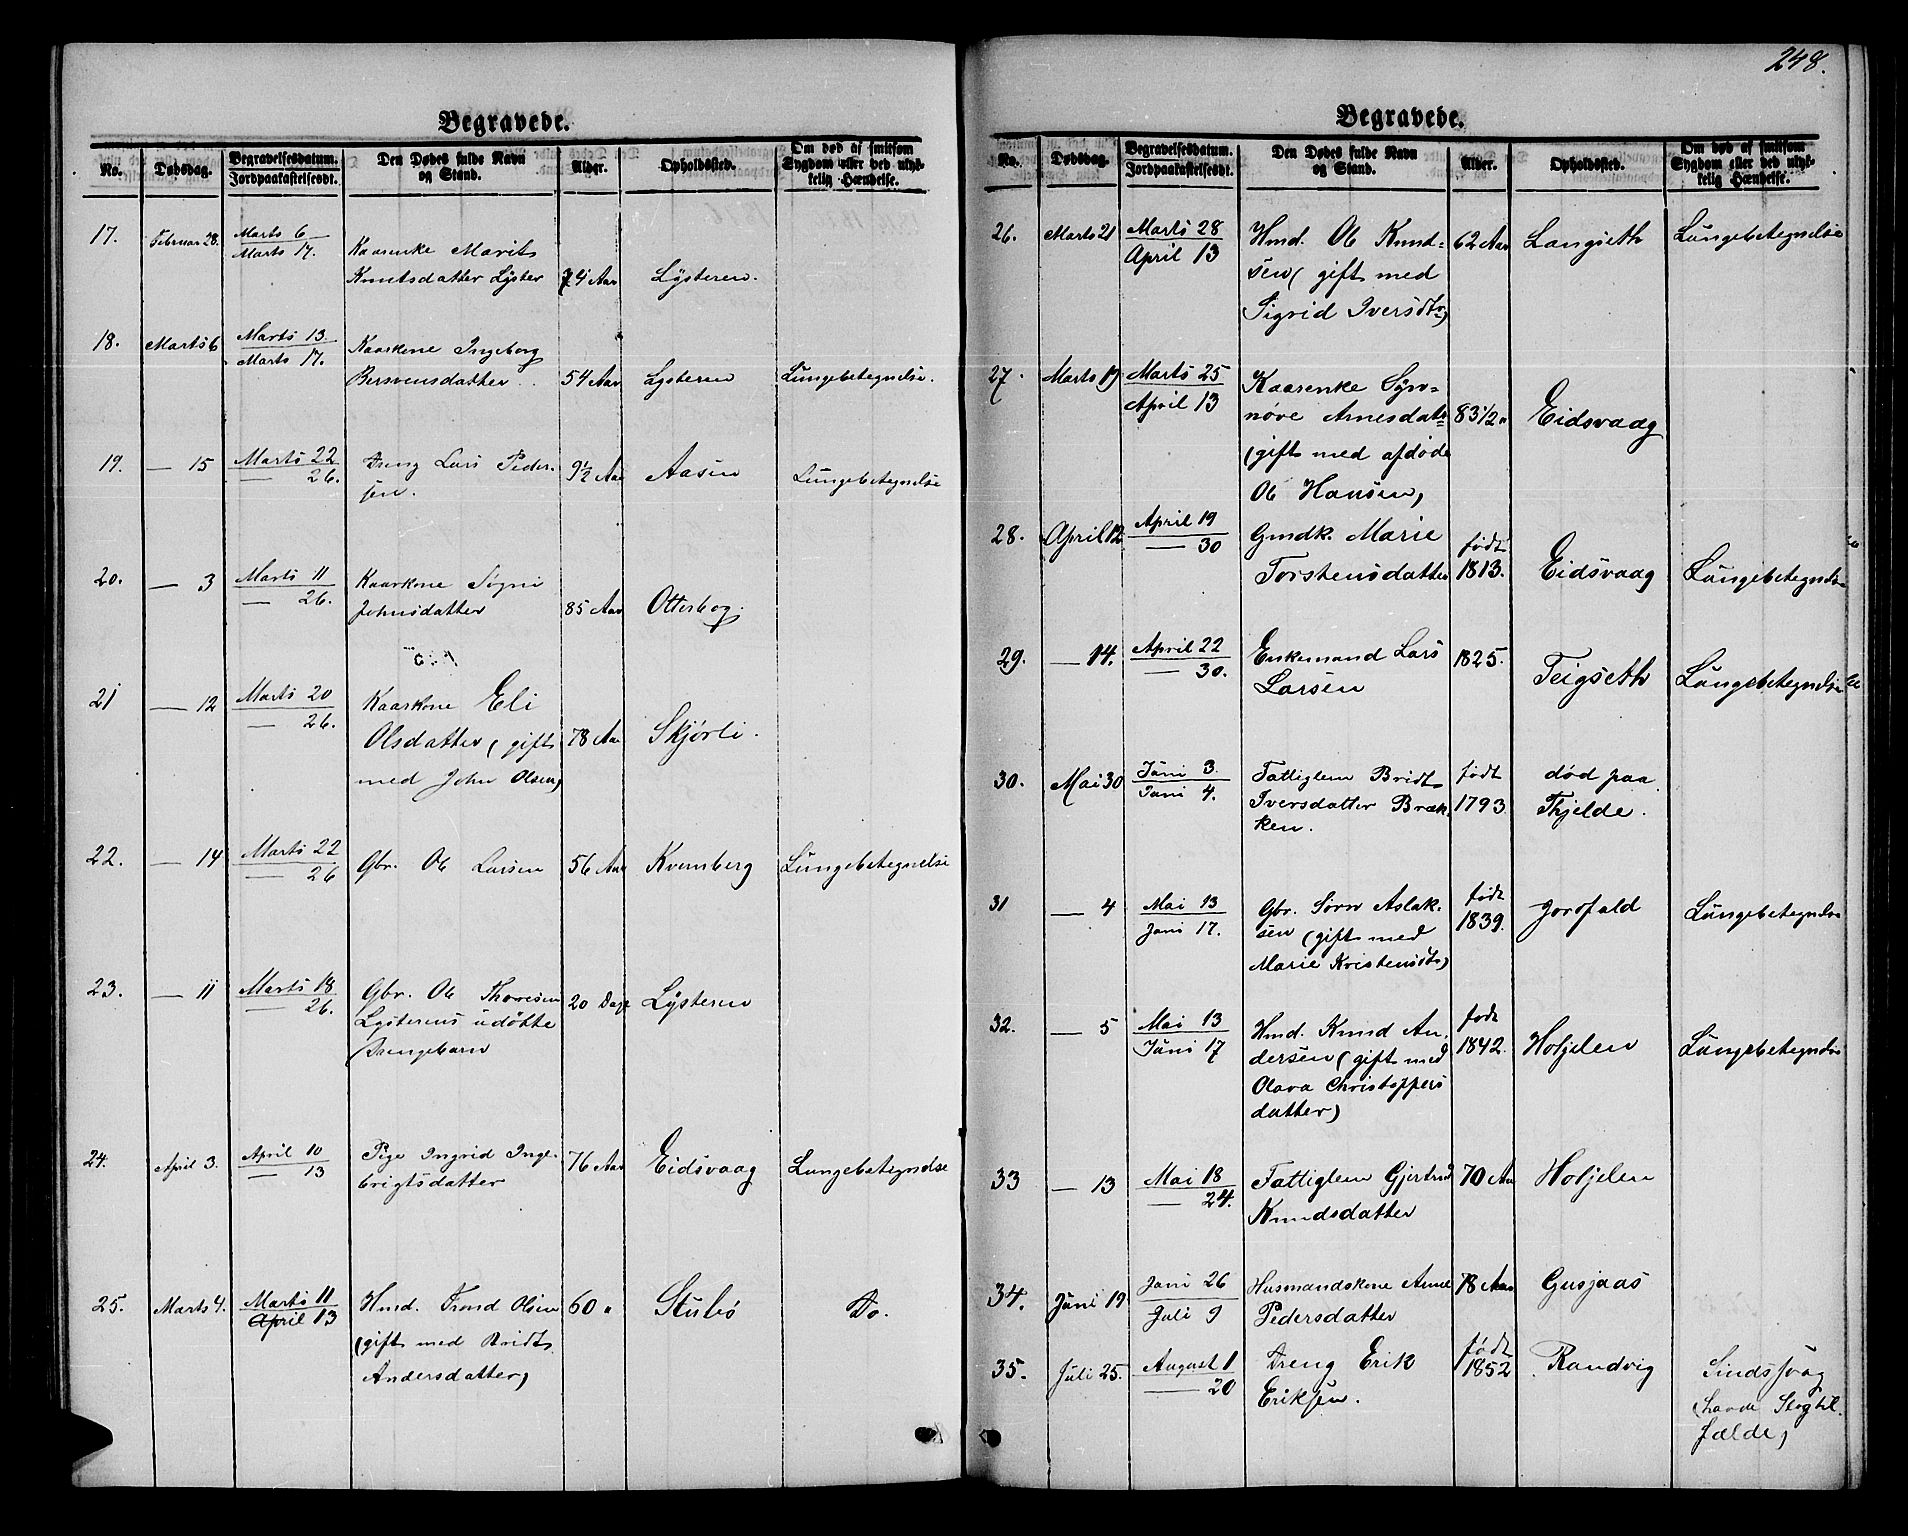 248.
Begravede.
No.
Dødsdag.
Begravelsesdatum.
Jordpaakastelsesdt.
Den Dødes fulde Navn
og Stand.
Alder.
Opholdssted.
Om død af smitsom
Sygdom eller ved ulyk-
kelig Hændelse.
17.
Februar 28.
Marts 6
Marts 17.
Kaarenke Marit
Knutsdatter Lyster
74 Aar
Lysteren.
18.
Marts 6
Marts 13.
Marts 17.
Kaarkone Ingeborg
Bersvensdatter
54 Aar
Lysteren
Lungebetegnelse.
19.
— 15
Marts 22
— 26.
Dreng Lars Peder-
sen.
9½ Aar
Aasen
Lungebetegnelse
20.
— 3
Marts 11
— 26.
Kaarkone Søgni
Johnsdatter
85 Aar
Otterbog.
21
— 12
Marts 20
— 26.
Kaarkone Eli
Olsdatter (gift
med John Olsen)
78 Aar
Skjørli.
22.
— 14
Marts 22
— 26
Gbr. Ole Larsen
56 Aar
Kvernberg
Lungebetegnelse
23.
— 11
Marts 18
— 26.
Gbr. Ole Thoresen
Lysterens udøbte
Drengebarn
20 Dage
Lysteren
24.
April 3.
April 10
— 13
Pige Ingrid Inge-
brigtsdatter
76 Aar
Eidsvaag
Lungebetegnelse
25.
Marts 4.
Marts 11
April 13
Hmd. Trond Olsen
(gift med Bridt
Andersdatter)
60 "
Stubø
Do.
Begravede.
No.
Dødsdag.
Begravelsesdatum.
Jordpaakastelsesdt.
Den Dødes fulde Navn
og Stand.
Alder.
Opholdssted.
Om død af smitsom
Sygdom eller ved ulyk-
kelig Hændelse.
26.
Marts 21
Marts 28
April 13
Hmd. Ole Knud-
sen (gift med
Sigrid Iversdtr)
62 Aar
Langseth
Lungebetegnelse
27.
Marts 19
Marts 25
April 13
Kaarenke Syn-
nøve Arnesdatr
(gift med afdøde
Ole Hansen)
83 1/2 "
Eidsvaag
28.
April 12
April 19
— 30
Gmdk. Marie
Torstensdatter
født
1813.
Eidsvaag
Lungebetegnelse
29.
— 14.
April 22
— 30.
Enkemand Lars
Larsen
1825.
Teigseth
Lungebetegnelse
30.
Mai 30
Juni 3.
Juni 4.
Fattiglem Bridt
Iversdatter Bræk-
ken.
født
1793.
død paa
Thjelde.
31
— 4
Mai 13
Juni 17.
Gbr. Sørn Aslak-
sen (gift med
Marie Kristensdtr)
født
1839.
Jorofald
Lungebetegnelse
32.
— 5
Mai 13
Juni 17
Hmd. Knud An-
dersen (gift med
Olava Christoffers
datter)
født
1842.
Holjelen
Lungebetegnelse
33
— 13
Mai 18
— 24.
Fattiglem Gjertrud
Knudsdatter
70 Aar
Holjelen
34.
Juni 19
Juni 26
Juli 9
Husmandskone Anne
Pedersdatter
78 Aar
Gusjaas
35.
Juli 25.
August 1
— 20
Dreng Erik
Eriksen.
født
1852
Randvig
Sindssvag
(havde Slagtil-
fælde)